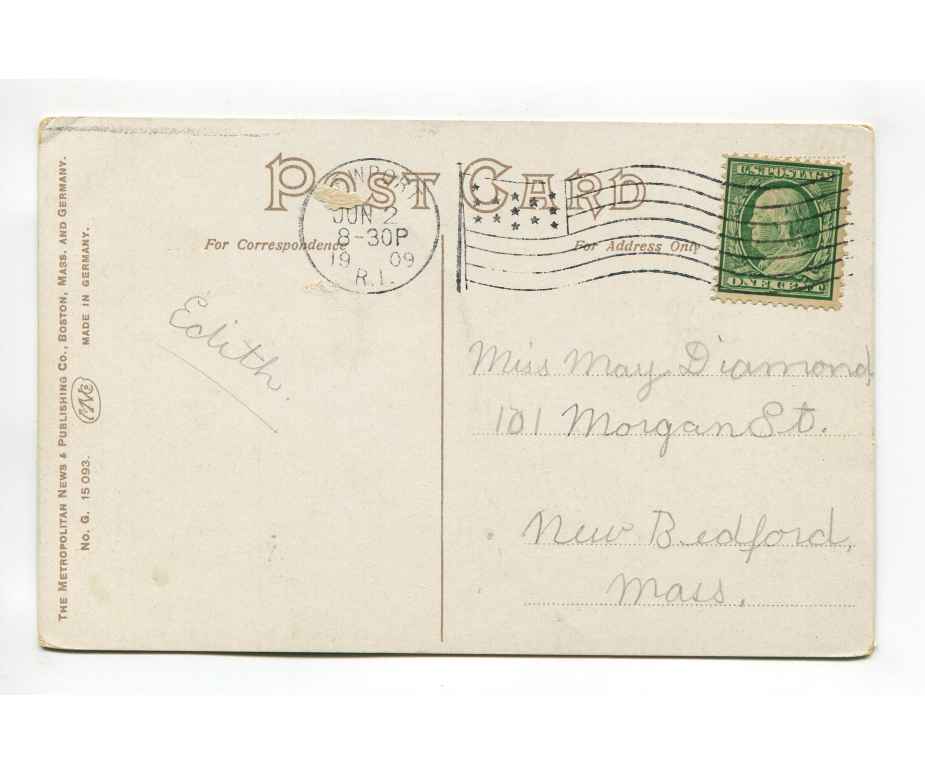 THE METROPOLITAN NEWS & PUBLISHING CO., BOSTON, MASS. AND GERMANY.
No. G. 15 093.
MADE IN GERMANY.
POST CARD
For Correspondence
For Address Only
JUN 2
8-30P
19 09
R.I.
U.S. POSTAGE
ONE CENT
Edith.
Miss May Diamond
101 Morgan St.
New Bedford,
Mass.